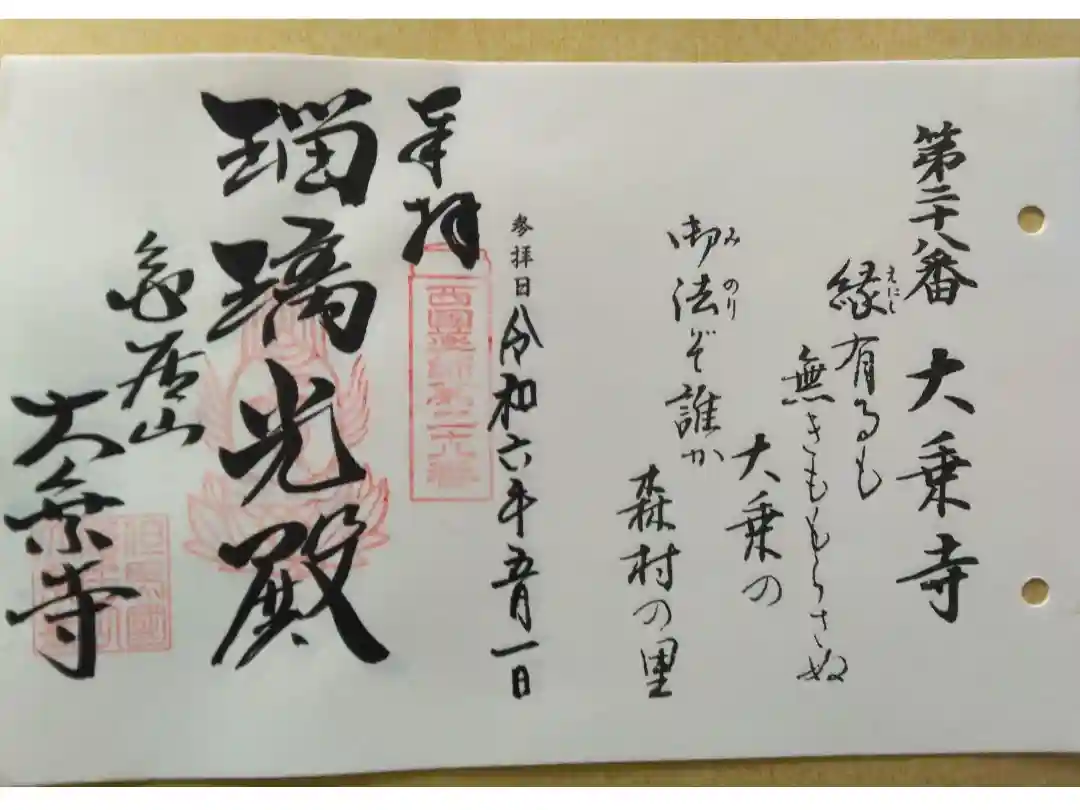 第二十八番 大乗寺
縁有るも
えにし
無きももらさぬ
大乗の
御法ぞ誰か
みのり
森村の里
参拝日 令和六年五月一日
奉拝
西國薬師第二十八番
瑠璃光殿
亀居山
大乗寺